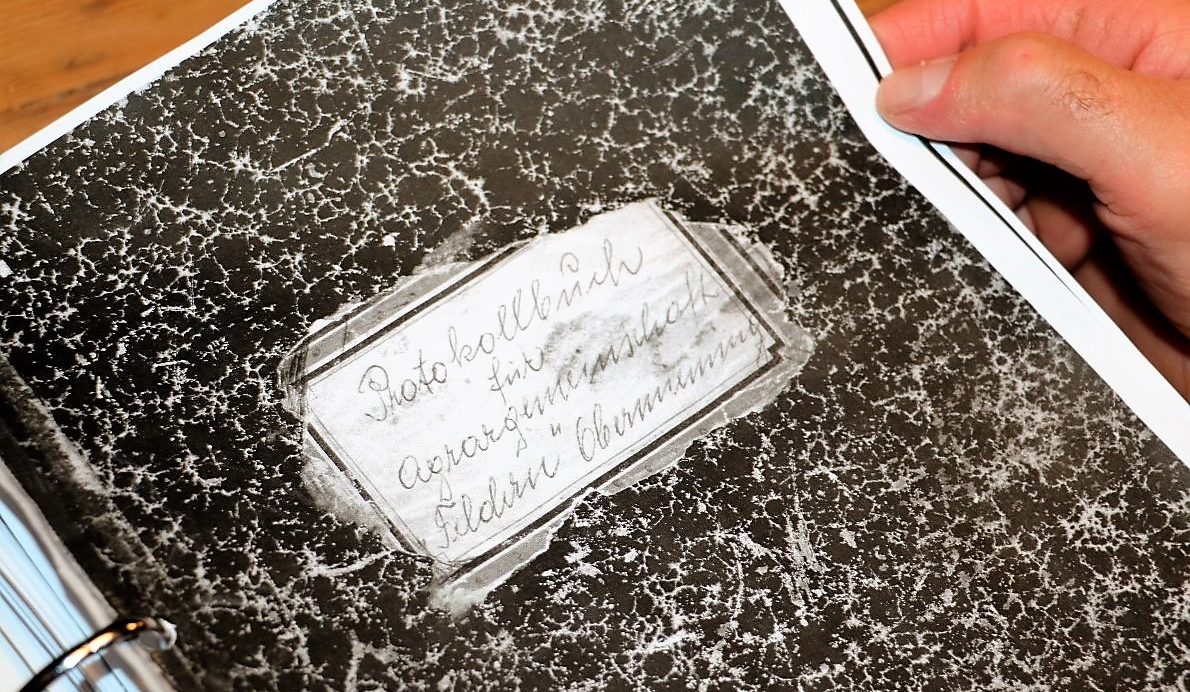 Protokollbuch
für
Agrargemeinschaft
Feldern " Obermieming